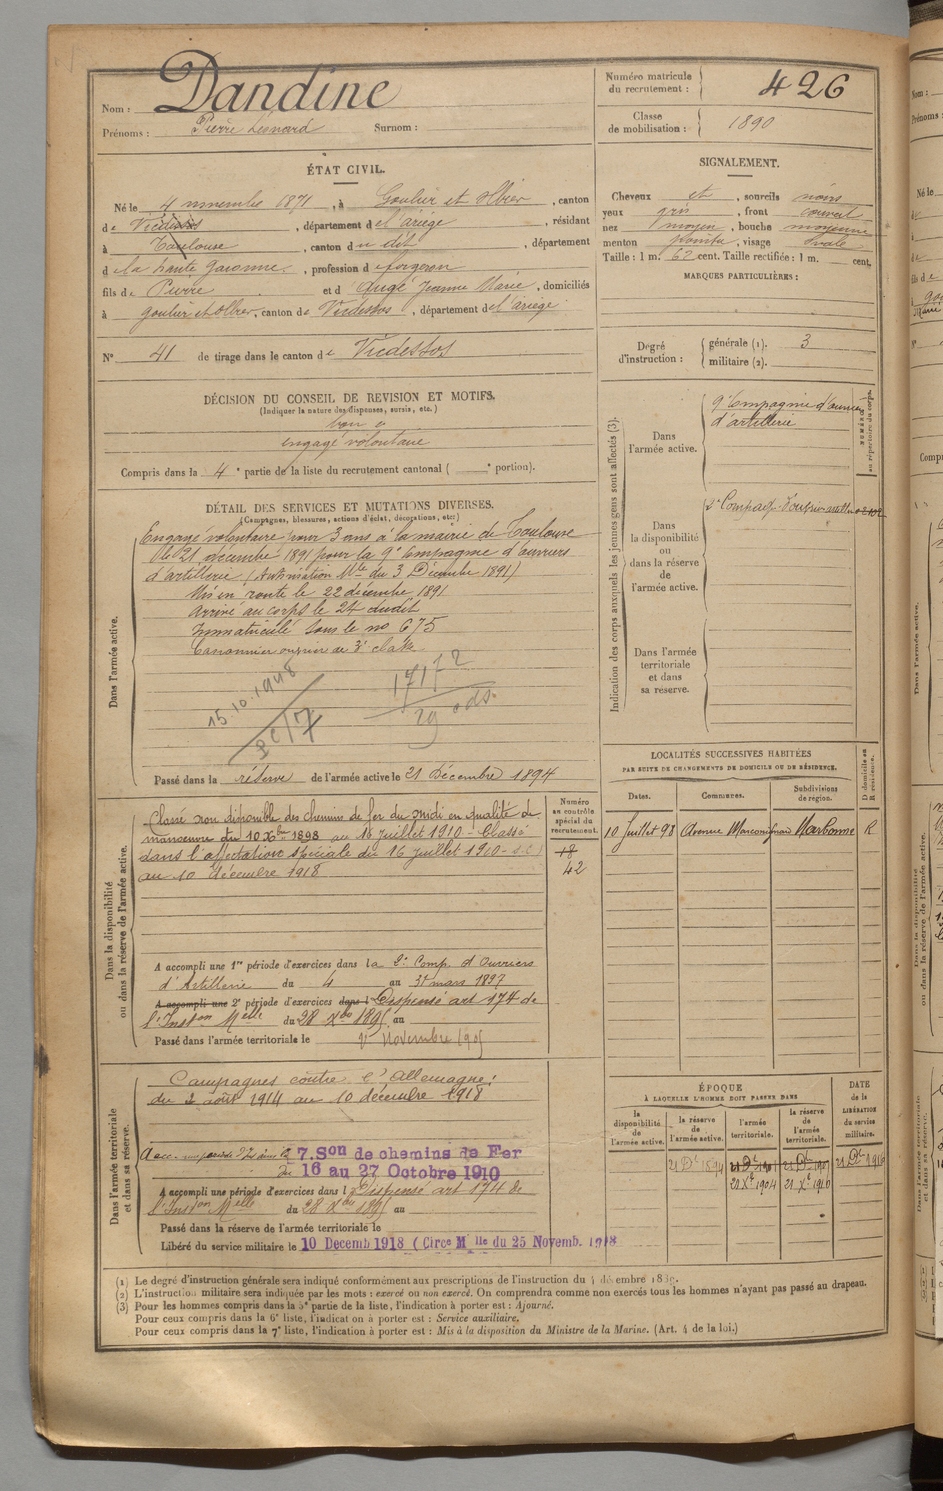 Nom : Dandine
Prénoms : Pierre Léonard Surnom :
Numéro matricule du recrutement : 426
Classe de mobilisation : 1890
ÉTAT CIVIL.
Né le 4 novembre 1871, à Goulier et Olbier, canton
de Vicdessos, département de l'ariège, résidant
à Toulouse, canton du dit, département
de la haute Garonne, profession de forgeron
fils de Pierre et d'Augé Jeanne Marie, domiciliés
à Goulier et Olbier, canton de Vicdessos, département de l'ariège
N° 41 de tirage dans le canton de Vicdessos
SIGNALEMENT.
Cheveux et, sourcils noirs
yeux gris, front couvert
nez moyen, bouche moyenne
menton pointu, visage ovale
Taille : 1 m. 62 cent. Taille rectifiée : 1 m. cent.
MARQUES PARTICULIÈRES :
Degré d'instruction : générale (1). 3
militaire (2).
DÉCISION DU CONSEIL DE REVISION ET MOTIFS.
(Indiquer la nature des dispenses, sursis, etc.)
bon
engagé volontaire
Compris dans la 4e partie de la liste du recrutement cantonal ( e portion).
DÉTAIL DES SERVICES ET MUTATIONS DIVERSES.
(Campagnes, blessures, actions d'éclat, décorations, etc.)
Dans l'armée active.
Engagé volontaire pour 3 ans à la mairie de Toulouse
le 21 décembre 1891 pour la 9e Compagnie d'ouvriers
d'artillerie (Autorisation Mlle du 3 Décembre 1891)
Mis en route le 22 décembre 1891
Arrivé au corps le 24 dudit
Immatriculé sous le no 675
Canonnier ouvrier de 3e classe
15.10.1948
17172
29
Passé dans la réserve de l'armée active le 21 Décembre 1894
Indication des corps auxquels les jeunes gens sont affectés (3).
NUMÉROS au répertoire du corps.
Dans l'armée active.
9e Compagnie d'ouvriers
d'artillerie
Dans la disponibilité ou dans la réserve de l'armée active.
2e Compagie d'ouvriers
Dans l'armée territoriale et dans sa réserve.
LOCALITÉS SUCCESSIVES HABITÉES
PAR SUITE DE CHANGEMENTS DE DOMICILE OU DE RÉSIDENCE.
Dates. Communes. Subdivisions de région. D domicile ou R résidence.
10 Juillet 98 Avenue Narbonne R
Dans la disponibilité ou dans la réserve de l'armée active.
Numéro au contrôle spécial du recrutement.
Classé non disponible des chemins de fer du midi en qualité de
manoeuvre du 10 Xbre 1898 au 16 juillet 1910 - Classé
dans l'affectation spéciale du 16 juillet 1910
au 10 décembre 1918
18
42
A accompli une 1re période d'exercices dans la 2e Comp. d'Ouvriers
d'Artillerie du 4 au 31 mars 1897
A accompli une 2e période d'exercices dans l Dispensé art 174 de
l'Inston Melle du 28 Xbre 1895 au
Passé dans l'armée territoriale le 1r Novembre 1905
Dans l'armée territoriale et dans sa réserve.
Campagnes contre l'Allemagne :
du 2 août 1914 au 10 décembre 1918
7. Son de chemins de Fer
du 16 au 27 Octobre 1910
A accompli une période d'exercices dans l Dispensé art 174 de
l'Inston Melle du 28 Xbre 1895 au
Passé dans la réserve de l'armée territoriale le
Libéré du service militaire le 10 Decemb 1918 (Circe Mlle du 25 Novemb. 1918
ÉPOQUE
À LAQUELLE L'HOMME DOIT PASSER DANS
la disponibilité de l'armée active. la réserve de l'armée active. l'armée territoriale. la réserve de l'armée territoriale.
DATE de la LIBÉRATION du service militaire.
21 Dc 1894
21 Xe 1904 21 Xe 1910
(1) Le degré d'instruction générale sera indiqué conformément aux prescriptions de l'instruction du
(2) L'instruction militaire sera indiquée par les mots : exercé ou non exercé. On comprendra comme non exercés tous les hommes n'ayant pas passé au drapeau.
(3) Pour les hommes compris dans la 5e partie de la liste, l'indication à porter est : Ajourné.
Pour ceux compris dans la 6e liste, l'indication à porter est : Service auxiliaire.
Pour ceux compris dans la 7e liste, l'indication à porter est : Mis à la disposition du Ministre de la Marine. (Art. 4 de la loi.)